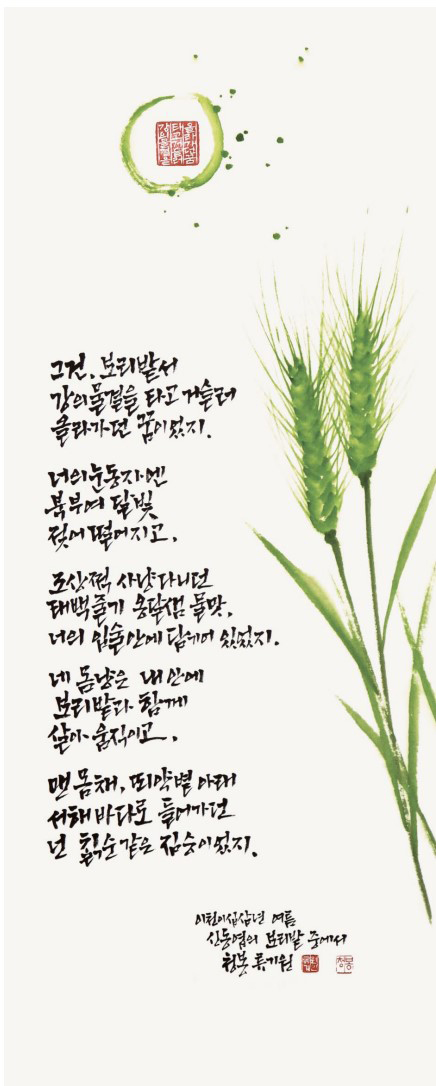 그건, 보리밭서
강의 물결을 타고 거슬러
올라가던 꿈이었지.
너의 눈동자엔
북부여 달빛
젖어 떨어지고,
조상적 사냥 다니던
태백줄기 옹달샘 물맛,
너의 입술 안에 담기어 있었지.
네 몸냥은 내 안에
보리밭과 함께
살아 움직이고,
맨 몸채, 뙤약볕 아래
서해바다로 들어가던
넌 칡순 같은 짐승이었지.
이천이십삼년 여름
신동엽의 보리밭 중에서
청봉 류기원